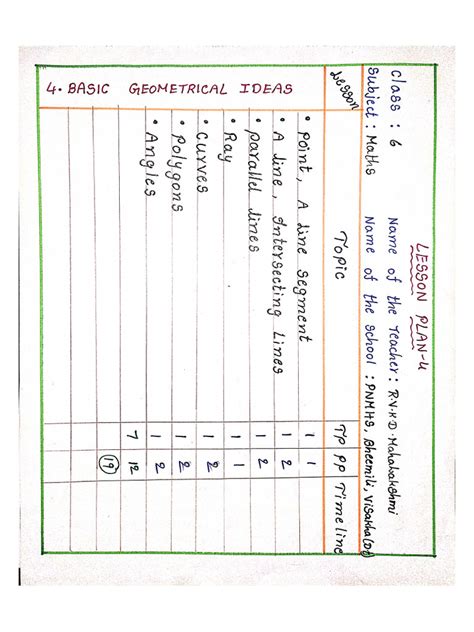 LESSON PLAN-4
Class : 6 Name of the Teacher : R.V.K.D Mahalakshmi
Subject : Maths Name of the School : PNMHS, Bheemili, Visakha(Dt)
Lesson Topic TP PP Timeline
4. BASIC GEOMETRICAL IDEAS
• point, A line segment 1 1
• A line, Intersecting Lines 1 2
• parallel lines 1 2
• Ray 1 1
• Curves 1 2
• Polygons 1 2
• Angles 1 2
7 12
19